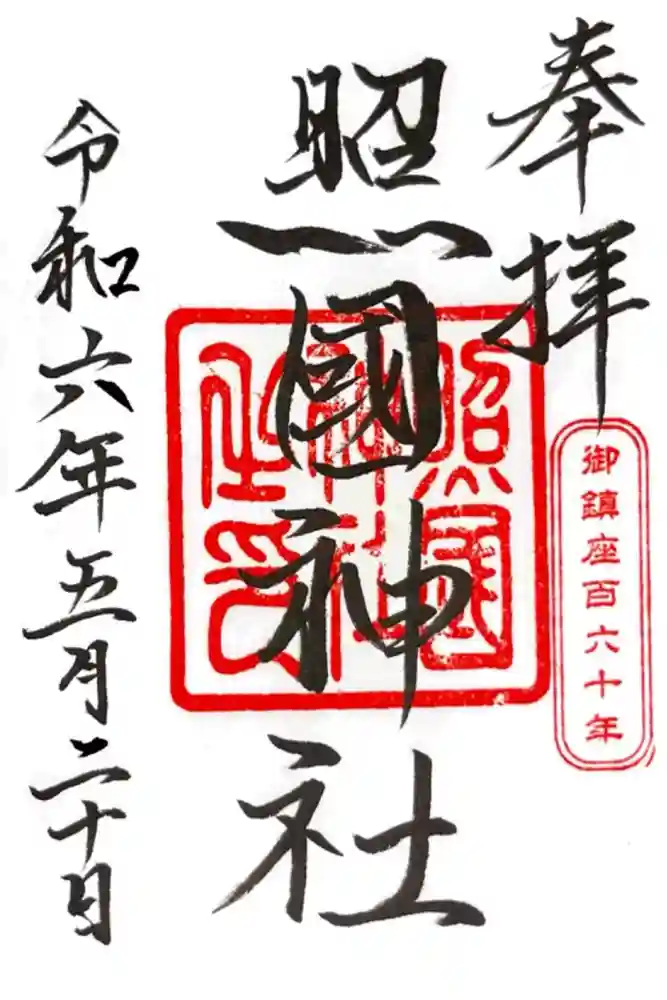 奉拝
御鎮座百六十年
照國神社
照國神社之印
令和六年五月二十日